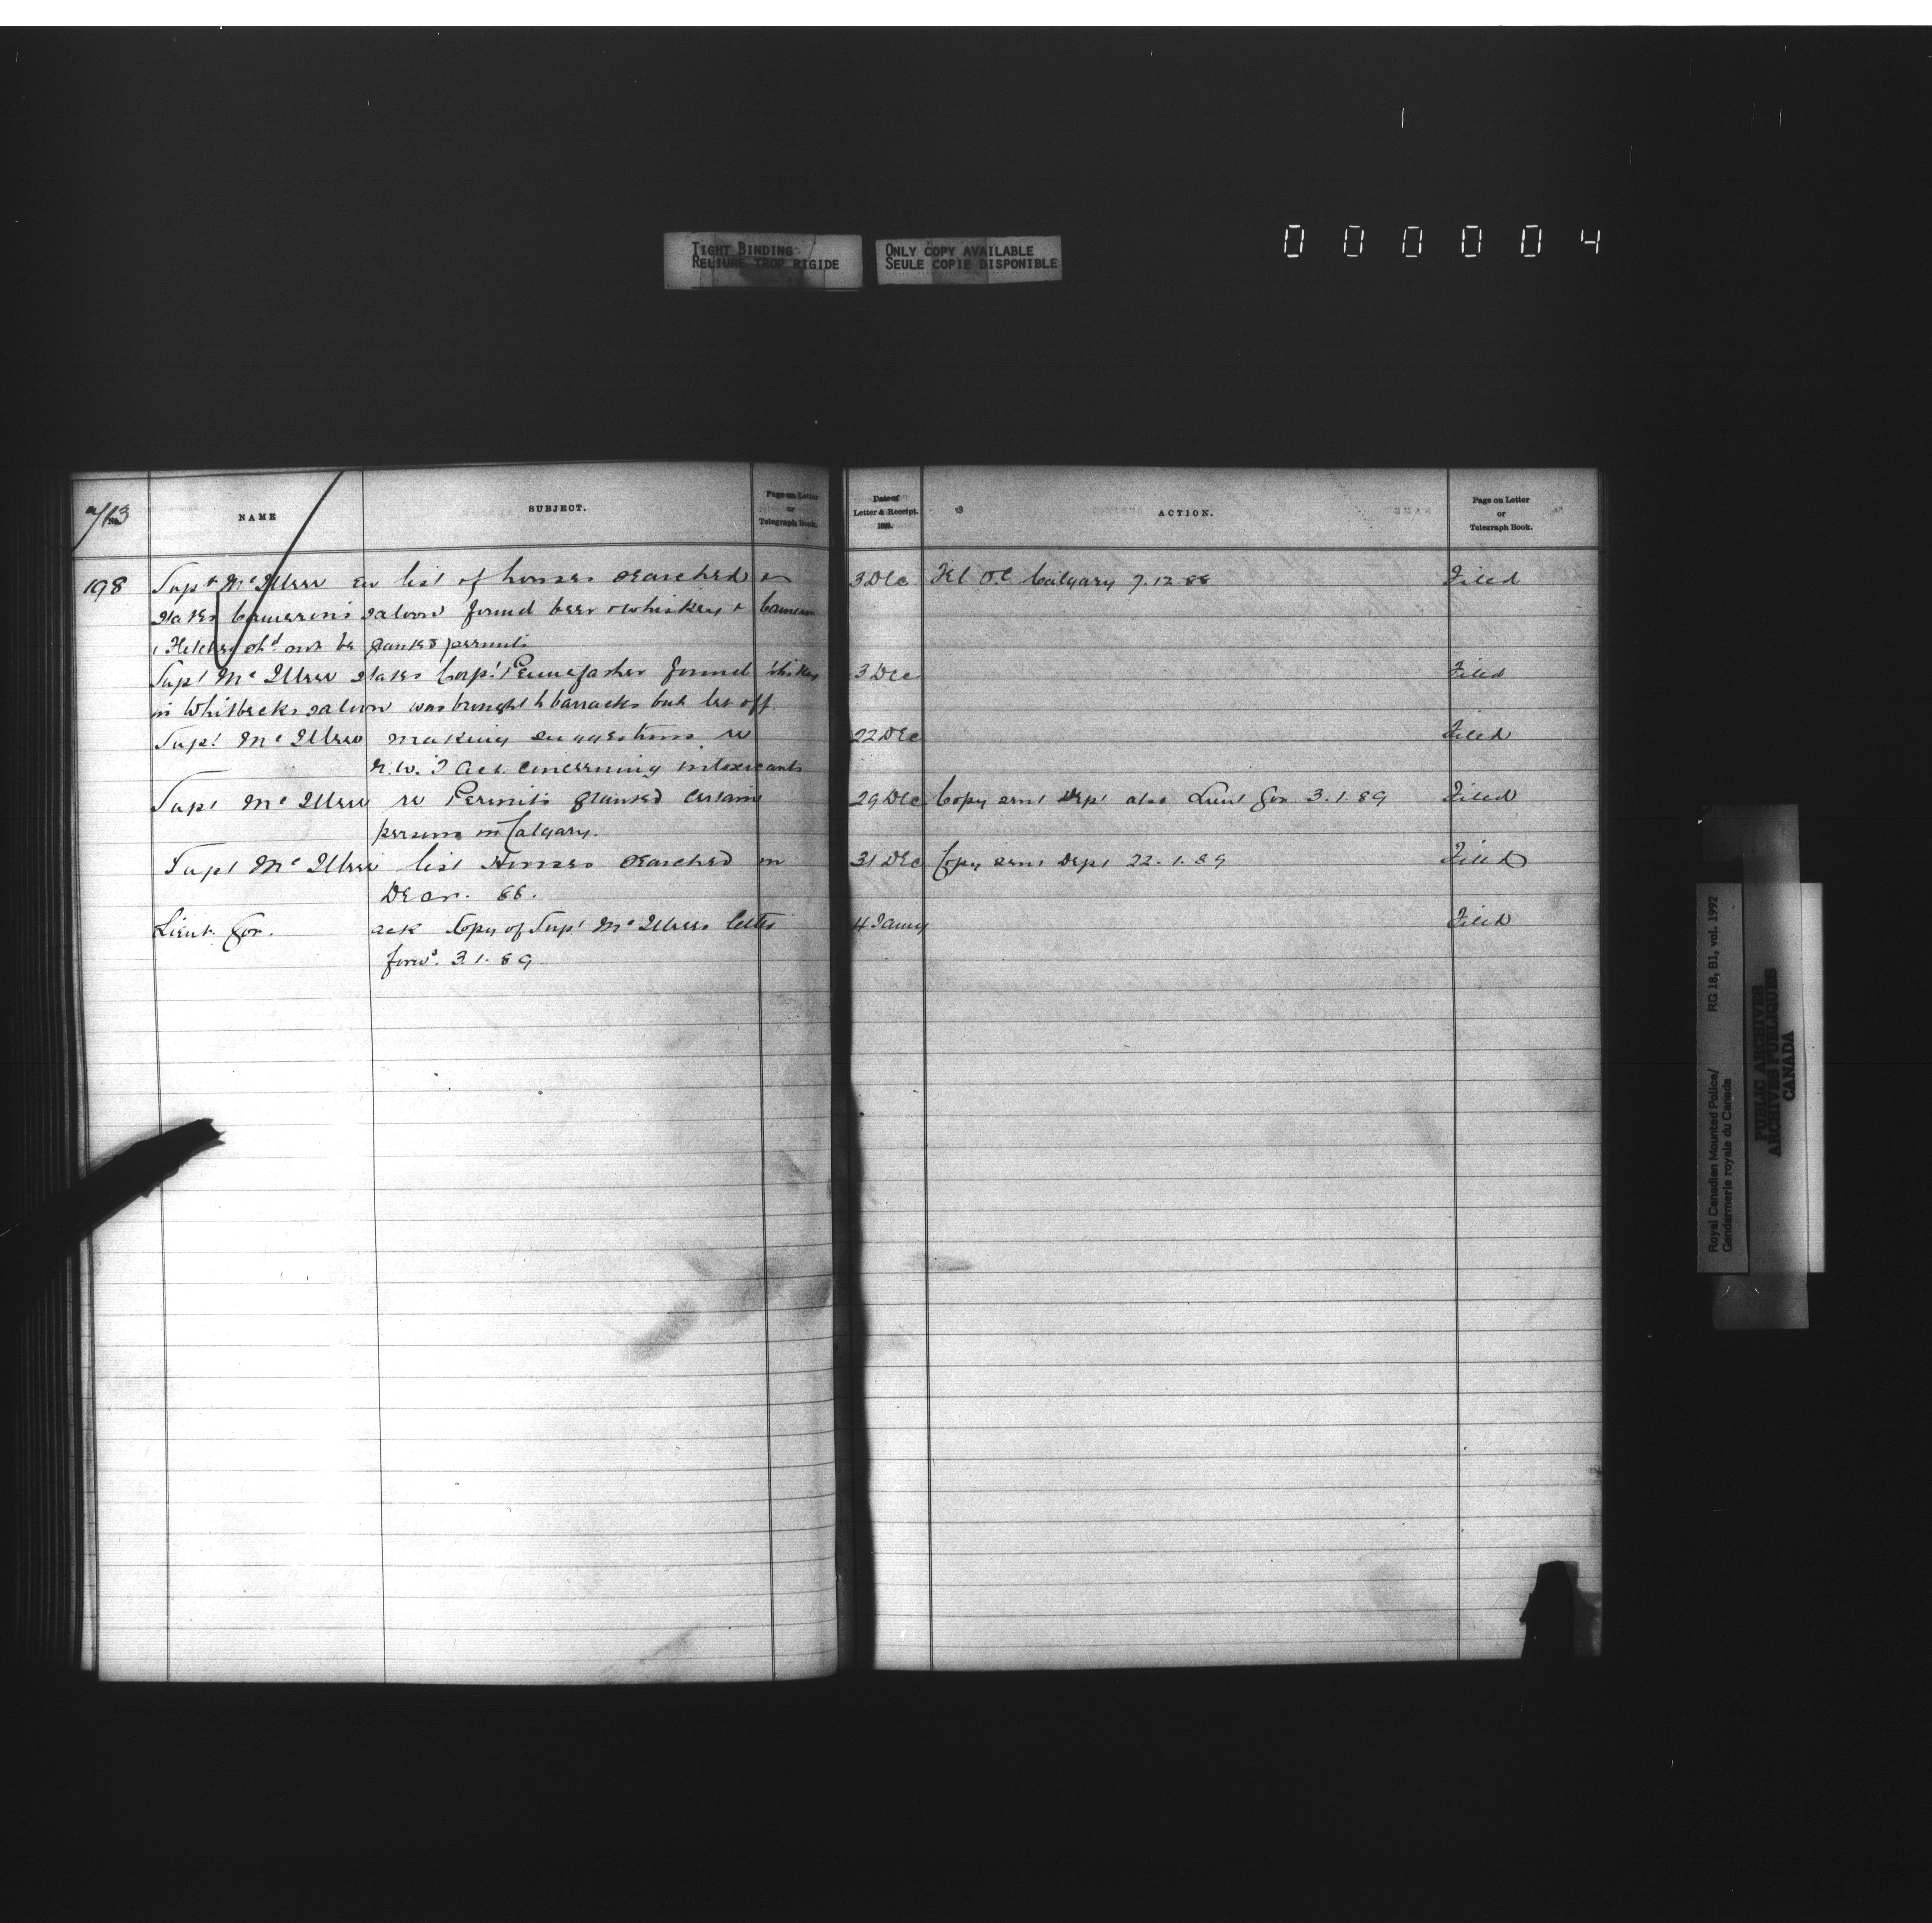 TIGHT BINDING
RELIURE TROP RIGIDE
ONLY COPY AVAILABLE
SEULE COPIE DISPONIBLE
000004
NAME
SUBJECT.
Page on Letter
or
Telegraph Book.
Date of
Letter & Receipt.
188
ACTION.
Page on Letter
or
Telegraph Book.
198 Supt McIllree en list of houses searched & 3 Dec Tel O.C. Calgary 7.12.88 Filed
states Cameron's saloon found beer & whiskey & Cameron
shd not be granted permits
Supt McIllree states Corpl Pennefather found whiskey 3 Dec Filed
in Whitbecks saloon was brought to barracks but let off.
Supt McIllree making suggestions re 22 Dec Filed
N.W.T Act. concerning intoxicants
Supt McIllree re Permits granted certain 29 Dec Copy sent Dept also Lieut Gov 3.1.89 Filed
persons in Calgary.
Supt McIllree list Houses searched in 31 Dec Copy sent Dept 22.1.89 Filed
Decr. 88.
Lieut. Gov. ack Copy of Supt McIllrees letter 4 Jany Filed
forwd. 3.1.89
Royal Canadian Mounted Police/
Gendarmerie royale du Canada
RG 18, B1, vol. 1992
PUBLIC ARCHIVES
ARCHIVES PUBLIQUES
CANADA